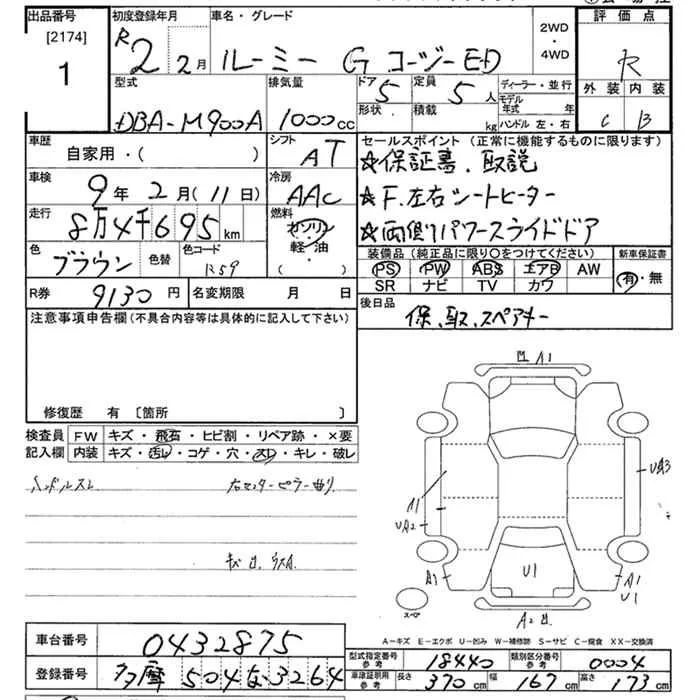 出品番号 初度登録年月 車名・グレード 評価点
[2174] R2 2月 ルーミー G コージーED 2WD・4WD R
1
型式 排気量 ドア 5 定員 5人 ディーラー・並行 外装 内装
DBA-M900A 1000cc 形状 積載 kg モデル年式 年 ハンドル 左・右 C B
車歴 自家用・( ) シフト AT セールスポイント (正常に機能するものに限ります)
☆保証書、取説
車検 9年2月(11日) 冷房 AAC ☆F.左右シートヒーター
走行 8万4千695km 燃料 ガソリン ☆両側パワースライドドア
軽・油
( )
色 ブラウン 色替 色コード 装備品 (純正品に限り○をつけてください) 新車保証書
PS PW ABS エアB AW 有・無
SR ナビ TV カワ
R券 9130円 名変期限 月 日 後日品 保、取、スペアキー
注意事項申告欄(不具合内容等は具体的に記入して下さい)
修復歴 有 〔箇所 〕
検査員 FW キズ・飛石・ヒビ割・リペア跡・×要
記入欄 内装 キズ・汚レ・コゲ・穴・スレ・キレ・破レ
ハンドルスレ 右センターピラー曲り
A1
UA3
A1
UA2
A1 U1 A1
U1
スペア
A2
A-キズ E-エクボ U-凹み W-補修跡 S-サビ C-腐食 XX-交換済
車台番号 0432875
型式指定番号 参考 18440 類別区分番号 参考 0004
登録番号 多摩 504 な 3264
車庫証明用 参考 長さ 370cm 幅 167cm 高さ 173cm